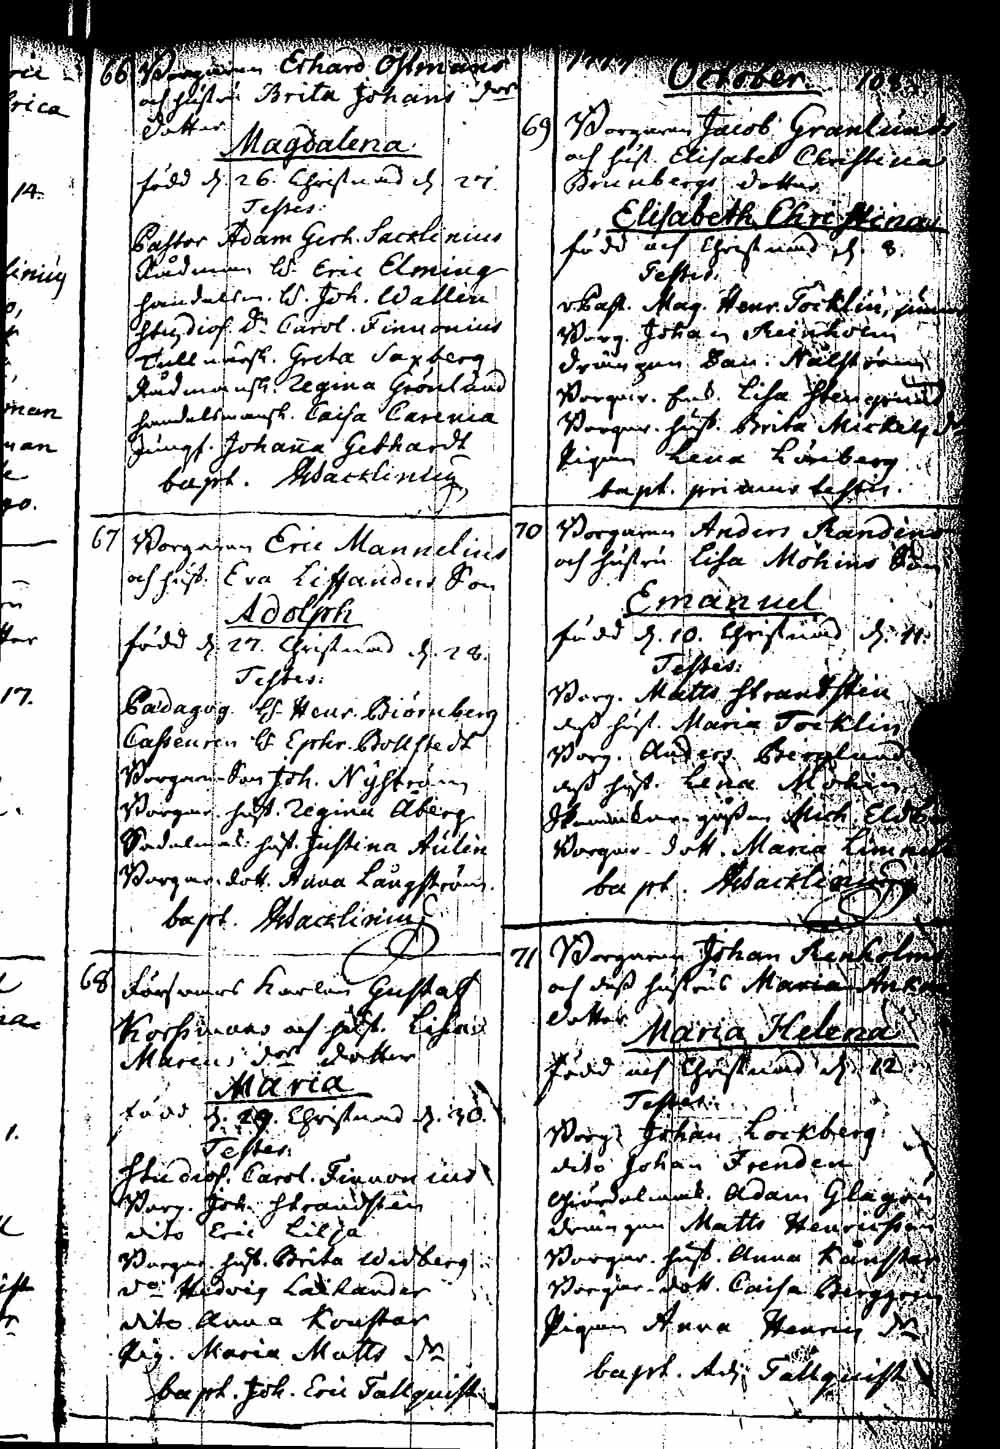 66 Borgaren Erhard Östmans
och hustru Brita Johans dr
dotter
Magdalena
född d. 26. Christnad d. 27.
Testes:
Pastor Adam Gerh. Sacklinius
Rådman H. Eric Elming
handelsm. H. Joh. Wallin
Studios. Dn. Carol. Finnonius
Greta Saxberg
Rådmansk. Regina Grönlund
handelsmansk. Caisa Carenia
Jungf. Johanna Gebhardt
bapt. Sacklinius
67 Borgaren Eric Mannelius
och hust. Eva Lissanders Son
Adolph
född d. 27. Christnad d. 28.
Testes:
Pædagog. H. Henr. Biörnberg
Casseuren H. Ephr. Bollstedt
Borgare-Son Joh. Nyström
Borgar. hust. Regina Åberg
hust. Justina Aulin
Borgar-dott. Anna Långström.
bapt. Sacklinius
68 Försvars Karlen Gustaf
Korssmans och hust. Lisa
Marcus dr dotter
Maria
född d. 29. Christnad d. 30.
Testes:
Studios. Carol. Finnonius
Borg. Joh. Strandsten
dito Eric Lilja
Borgar. hust. Brita Widberg
do Hedvig Lathander
dito Anna Konstar
Pig. Maria Matts dr
bapt. Joh. Eric Tallquist
October. 108.
69 Borgaren Jacob Granlunds
och hust. Elisabet Christina
Brunbergs dotter
Elisabeth Christina
född och Christnad d. 8.
Testes.
v. Past. Mag. Henr. Tocklin, junior
Borg. Johan Renholm
drängen Dan. Nälström
Borgar. Enk. Lisa Stengrund
Borgar. hust. Brita Mickels dr
Pigan Lena Lönberg
bapt. primus testis.
70 Borgaren Anders Randins
och hustru Lisa Mohins Son
Emanuel
född d. 10. Christnad d. 11.
Testes:
Borg. Matts Strandsten
dess hust. Maria Tocklin
Borg. Anders Berglund
dess hust. Lena Mohin
Mich.
Borgar-dott. Maria
bapt. Sacklinius
71 Borgaren Johan Renholms
och dess hustrus Maria
dotter
Maria Helena
född och Christnad d. 12
Testes:
Borg. Johan Lockberg
dito Johan Frenden
Adam
drängen Matts Henricsson
Borgar. hust. Anna Kånstar
Borgar-dott. Caisa Berggren
Pigan Anna Henrics dr
bapt. Adj. Tallquist